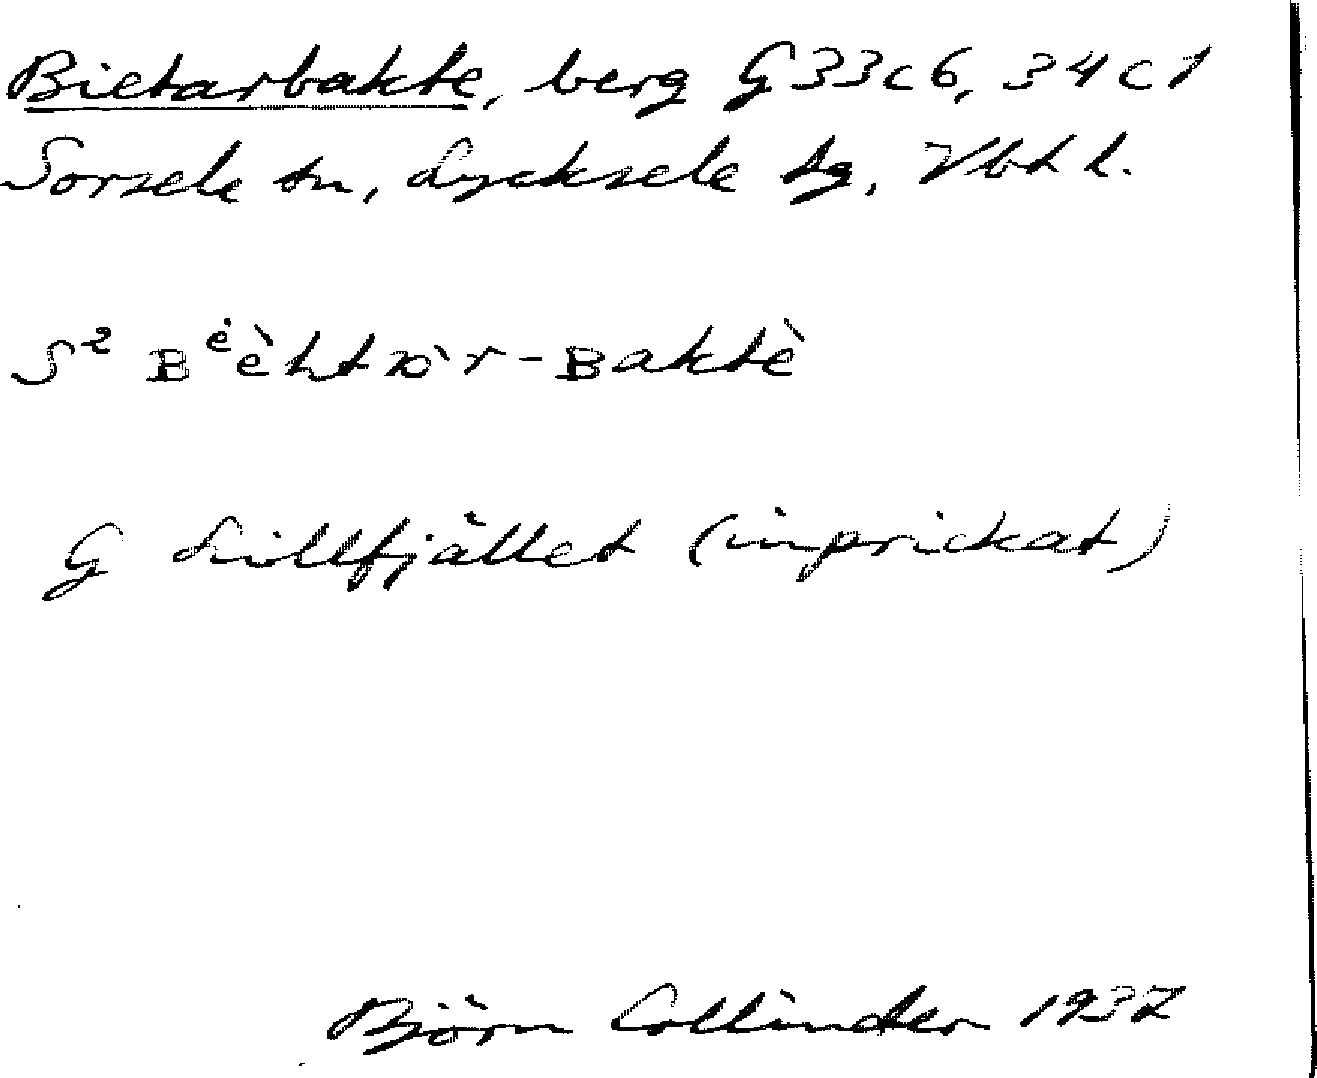 Bietarbakte, berg G 33 c 6, 34 c 1
Sorsele sn, Lycksele lg, Vbt l.
S² ʙᵉ̇èhttɒ̀r-ʙaktè
G Lillfjället (inprickat)
Björn Collinder 1937